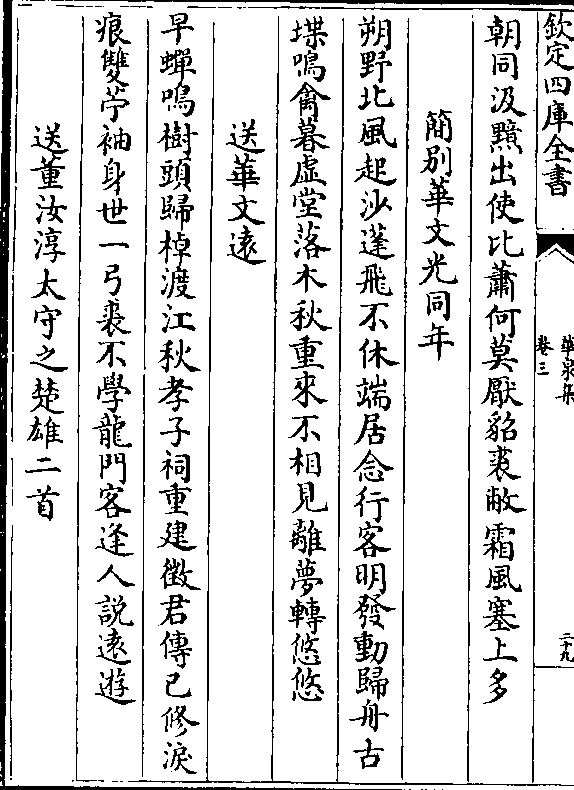 欽定四庫全書
華泉集
卷三
二十九
朝同汲黯出使比蕭何莫厭貂裘敝霜風塞上多
簡別華文光同年
朔野北風起沙蓬飛不休端居念行客明發動歸舟古
堞鳴禽暮虛堂落木秋重來不相見離夢轉悠悠
送華文遠
早蟬鳴樹頭歸棹渡江秋孝子祠重建徵君傳已修淚
痕雙苧袖身世一弓裘不學龍門客逢人說遠遊
送董汝淳太守之楚雄二首